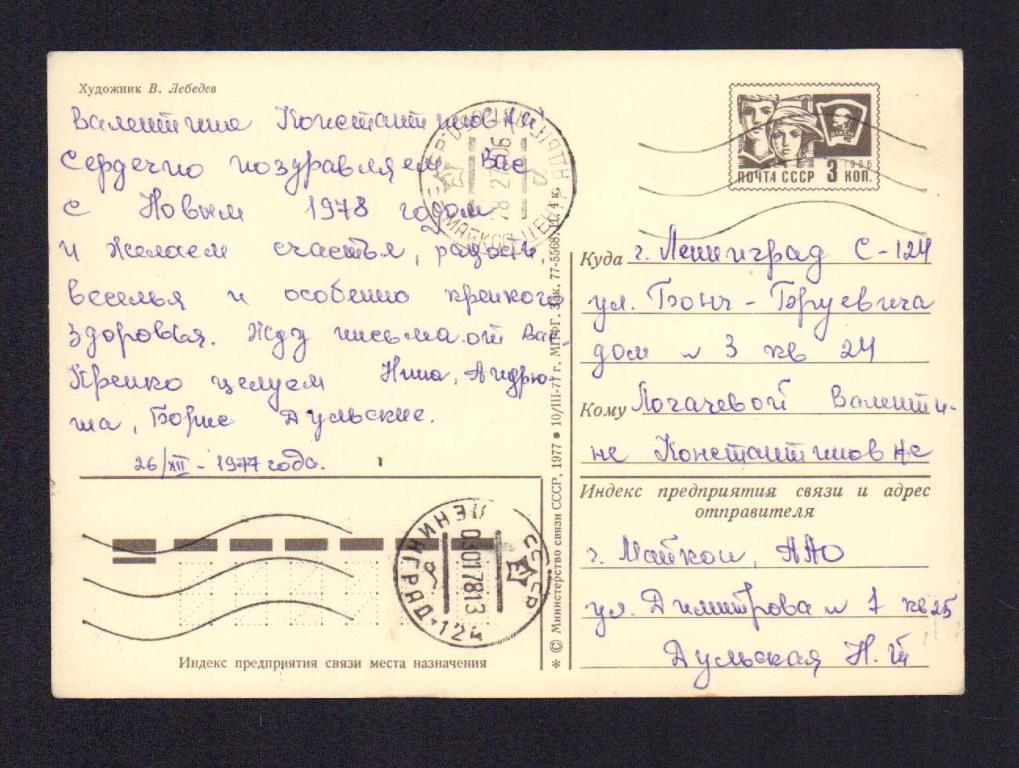 Художник В. Лебедев
Валентина Константиновна
Сердечно поздравляем Вас
с Новым 1978 годом
и желаем счастья, радости,
веселья и особенно крепкого
здоровья. Жду письма от Вас
Крепко целуем Нина, Андрю-
ша, Борис Дульские.
26/XII - 1977 года.
ПОЧТА СССР 3 КОП.
1966
ВЛКСМ
Куда г. Ленинград С-124
ул. Бонч-Бруевича
дом № 3 кв 24
Кому Логачевой Валенти-
не Константиновне
Индекс предприятия связи и адрес
отправителя
г. Майкоп, ААО
ул. Димитрова № 7 кв 25
Дульская Н.П
ЛЕНИНГРАД-124
СССР
03017813
Индекс предприятия связи места назначения
* © Министерство связи СССР, 1977 • 10/III-77 г. МПФГ. Зак. 77-5568. Ц. 4 к.